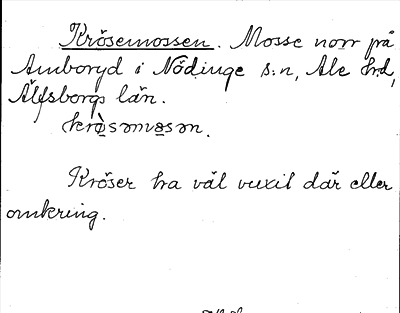 Krösemossen. Mosse norr på
Amboryd i Nödinge s:n, Ale hrd,
Älfsborgs län.
Kröser ha väl vuxit där eller
omkring.